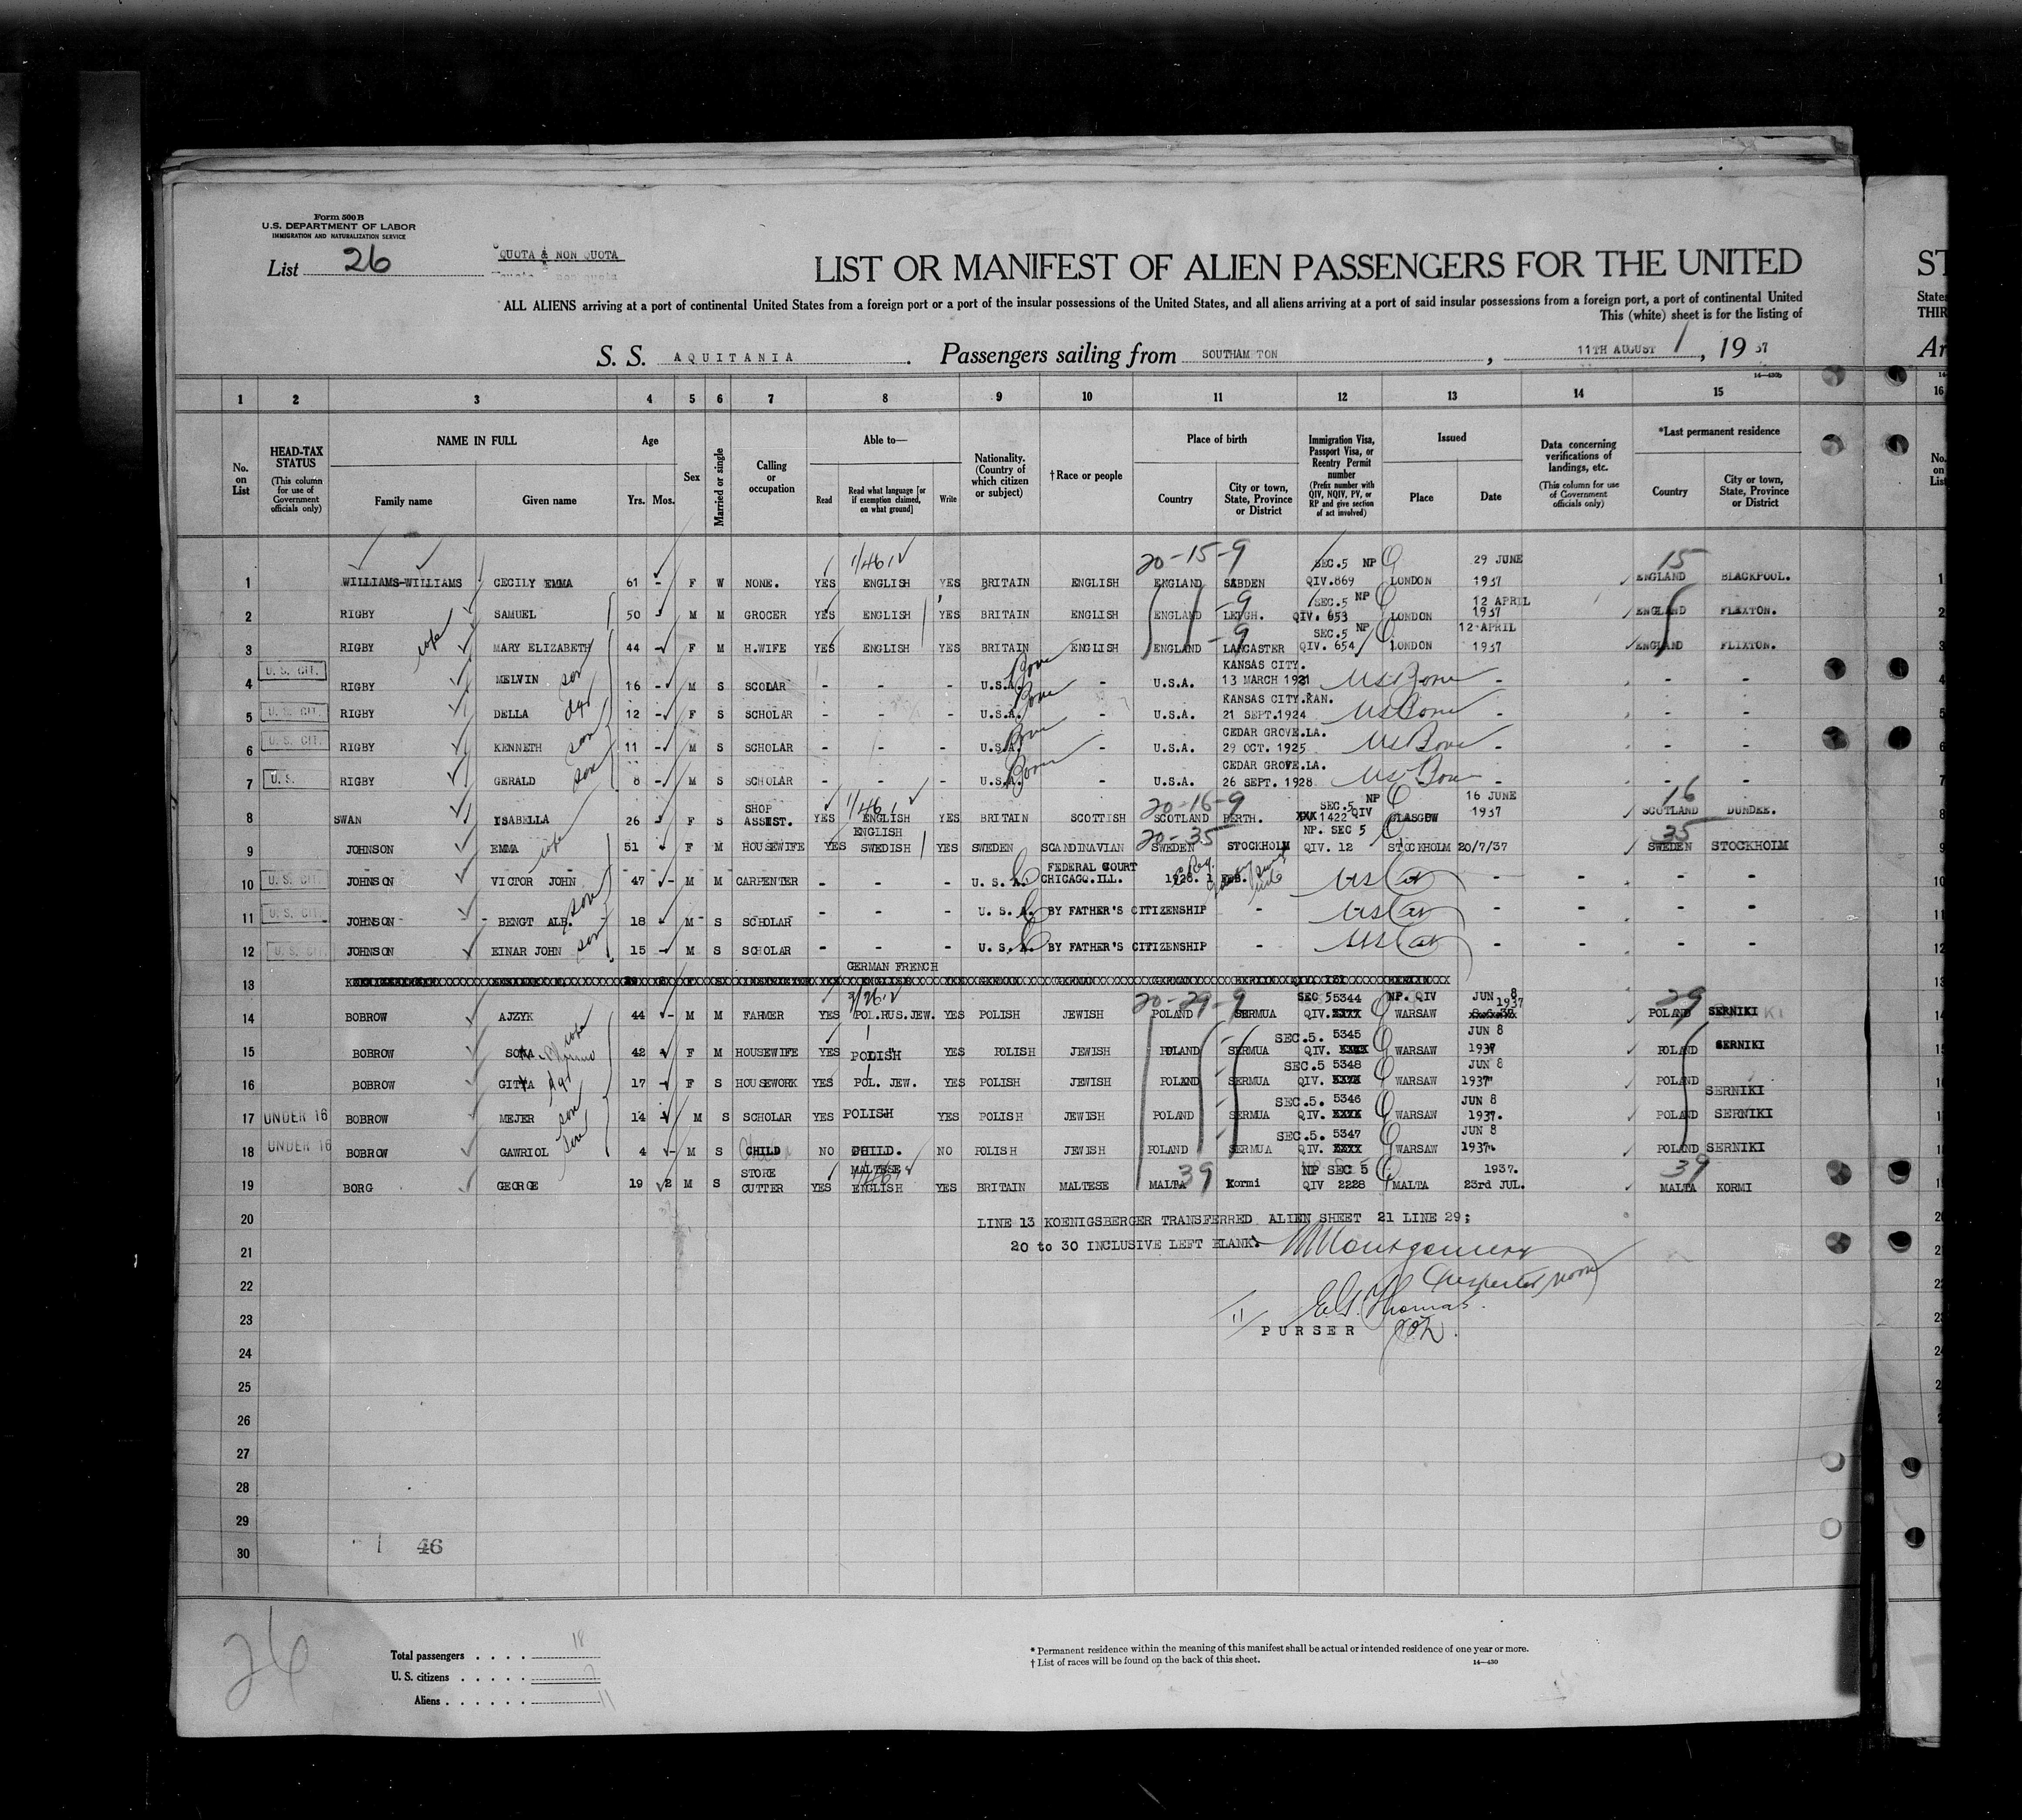 Form 500 B
U.S. DEPARTMENT OF LABOR
IMMIGRATION AND NATURALIZATION SERVICE
List 26
QUOTA & NON QUOTA
LIST OR MANIFEST OF ALIEN PASSENGERS FOR THE UNITED
ST
ALL ALIENS arriving at a port of continental United States from a foreign port or a port of the insular possessions of the United States, and all aliens arriving at a port of said insular possessions from a foreign port, a port of continental United
States
This (white) sheet is for the listing of
THIR
S. S. AQUITANIA. Passengers sailing from SOUTHAMPTON, 11TH AUGUST, 1937
Ar
14—430b
1 2 3 4 5 6 7 8 9 10 11 12 13 14 15 16
No. on List
HEAD-TAX STATUS (This column for use of Government officials only)
NAME IN FULL
Family name Given name
Age
Yrs. Mos.
Sex
Married or single
Calling or occupation
Able to—
Read Read what language [or if exemption claimed, on what ground] Write
Nationality. (Country of which citizen or subject)
†Race or people
Place of birth
Country City or town, State, Province or District
Immigration Visa, Passport Visa, or Reentry Permit number (Prefix number with QIV, NQIV, PV, or RP and give section of act involved)
Issued
Place Date
Data concerning verifications of landings, etc. (This column for use of Government officials only)
*Last permanent residence
Country City or town, State, Province or District
20-15-9 SEC.5 NP 29 JUNE 15
1 WILLIAMS-WILLIAMS CECILY EMMA 61 - F W NONE. YES ENGLISH YES BRITAIN ENGLISH ENGLAND SABDEN QIV.869 LONDON 1937 ENGLAND BLACKPOOL.
-9 SEC.5 NP 12 APRIL
2 RIGBY SAMUEL 50 - M M GROCER YES ENGLISH YES BRITAIN ENGLISH ENGLAND LEIGH. QIV. 653 LONDON 1937 ENGLAND FLIXTON.
-9 SEC.5 NP 12 APRIL
3 RIGBY wife MARY ELIZABETH 44 - F M H.WIFE YES ENGLISH YES BRITAIN ENGLISH ENGLAND LANCASTER QIV. 654 LONDON 1937 ENGLAND FLIXTON.
U. S. CIT. KANSAS CITY.
4 RIGBY MELVIN son 16 - M S SCOLAR - - - U.S.A. - U.S.A. 13 MARCH 1921 US Born - - -
KANSAS CITY.KAN.
5 U. S. CIT. RIGBY DELLA dgt 12 - F S SCHOLAR - - - U.S.A. - U.S.A. 21 SEPT.1924 US Born - - -
CEDAR GROVE.LA.
6 U. S. CIT. RIGBY KENNETH son 11 - M S SCHOLAR - - - U.S.A. - U.S.A. 29 OCT. 1925 US Born - - -
CEDAR GROVE.LA.
7 U. S. RIGBY GERALD son 8 - M S SCHOLAR - - - U.S.A. - U.S.A. 26 SEPT. 1928 US Born - - -
SHOP 20-16-9 SEC.5 NP 16 JUNE 16
8 SWAN ISABELLA 26 - F S ASSIST. YES ENGLISH YES BRITAIN SCOTTISH SCOTLAND PERTH. XXX 1422 QIV GLASGOW 1937 SCOTLAND DUNDEE.
ENGLISH 20-35 NP. SEC 5 35
9 JOHNSON EMMA wife 51 - F M HOUSEWIFE YES SWEDISH YES SWEDEN SCANDINAVIAN SWEDEN STOCKHOLM QIV. 12 STOCKHOLM 20/7/37 SWEDEN STOCKHOLM
FEDERAL COURT
10 U. S. CIT JOHNSON VICTOR JOHN 47 - M M CARPENTER - - - U. S. A. CHICAGO.ILL. 1928. 1 FEB. US Cit - - -
11 U. S. CIT. JOHNSON BENGT ALB. son 18 - M S SCHOLAR - - - U. S. A. BY FATHER'S CITIZENSHIP - US Cit - - -
12 U. S. CIT. JOHNSON EINAR JOHN son 15 - M S SCHOLAR - - - U. S. A. BY FATHER'S CITIZENSHIP - US Cit - - -
GERMAN FRENCH
13
20-29-9 SEC 5 5344 NP. QIV JUN 8 1937 29
14 BOBROW AJZYK 44 - M M FARMER YES POL.RUS.JEW. YES POLISH JEWISH POLAND SERMUA QIV. XXXX WARSAW POLAND SERNIKI
SEC.5. 5345 JUN 8
15 BOBROW SONA wife 42 - F M HOUSEWIFE YES POLISH YES POLISH JEWISH POLAND SERMUA QIV. XXXX WARSAW 1937 POLAND SERNIKI
SEC.5 5348 JUN 8
16 BOBROW GITTA dgt 17 - F S HOUSEWORK YES POL. JEW. YES POLISH JEWISH POLAND SERMUA QIV. XXXX WARSAW 1937 POLAND SERNIKI
SEC.5. 5346 JUN 8
17 UNDER 16 BOBROW MEJER son 14 - M S SCHOLAR YES POLISH YES POLISH JEWISH POLAND SERMUA QIV. XXXX WARSAW 1937. POLAND SERNIKI
SEC.5. 5347 JUN 8
18 UNDER 16 BOBROW GAWRIOL son 4 - M S CHILD NO CHILD. NO POLISH JEWISH POLAND SERMUA QIV. XXXX WARSAW 1937. POLAND SERNIKI
STORE MALTESE 39 NP SEC 5 1937. 39
19 BORG GEORGE 19 2 M S CUTTER YES ENGLISH YES BRITAIN MALTESE MALTA Kormi QIV 2228 MALTA 23rd JUL. MALTA KORMI
20 LINE 13 KOENIGSBERGER TRANSFERRED ALIEN SHEET 21 LINE 29;
21 20 to 30 INCLUSIVE LEFT BLANK. Montgomery
22
23 E.G. Thomas.
PURSER
24
25
26
27
28
29
30
46
26
Total passengers . . . . 18
U. S. citizens . . . . . 7
Aliens . . . . . . 11
* Permanent residence within the meaning of this manifest shall be actual or intended residence of one year or more.
† List of races will be found on the back of this sheet.
14—430